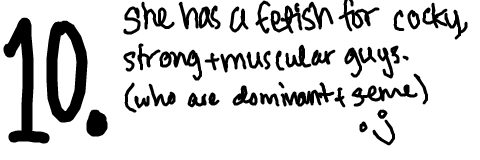 10.
she has a fetish for cocky,
strong+muscular guys.
(who are dominant & seme)
:J